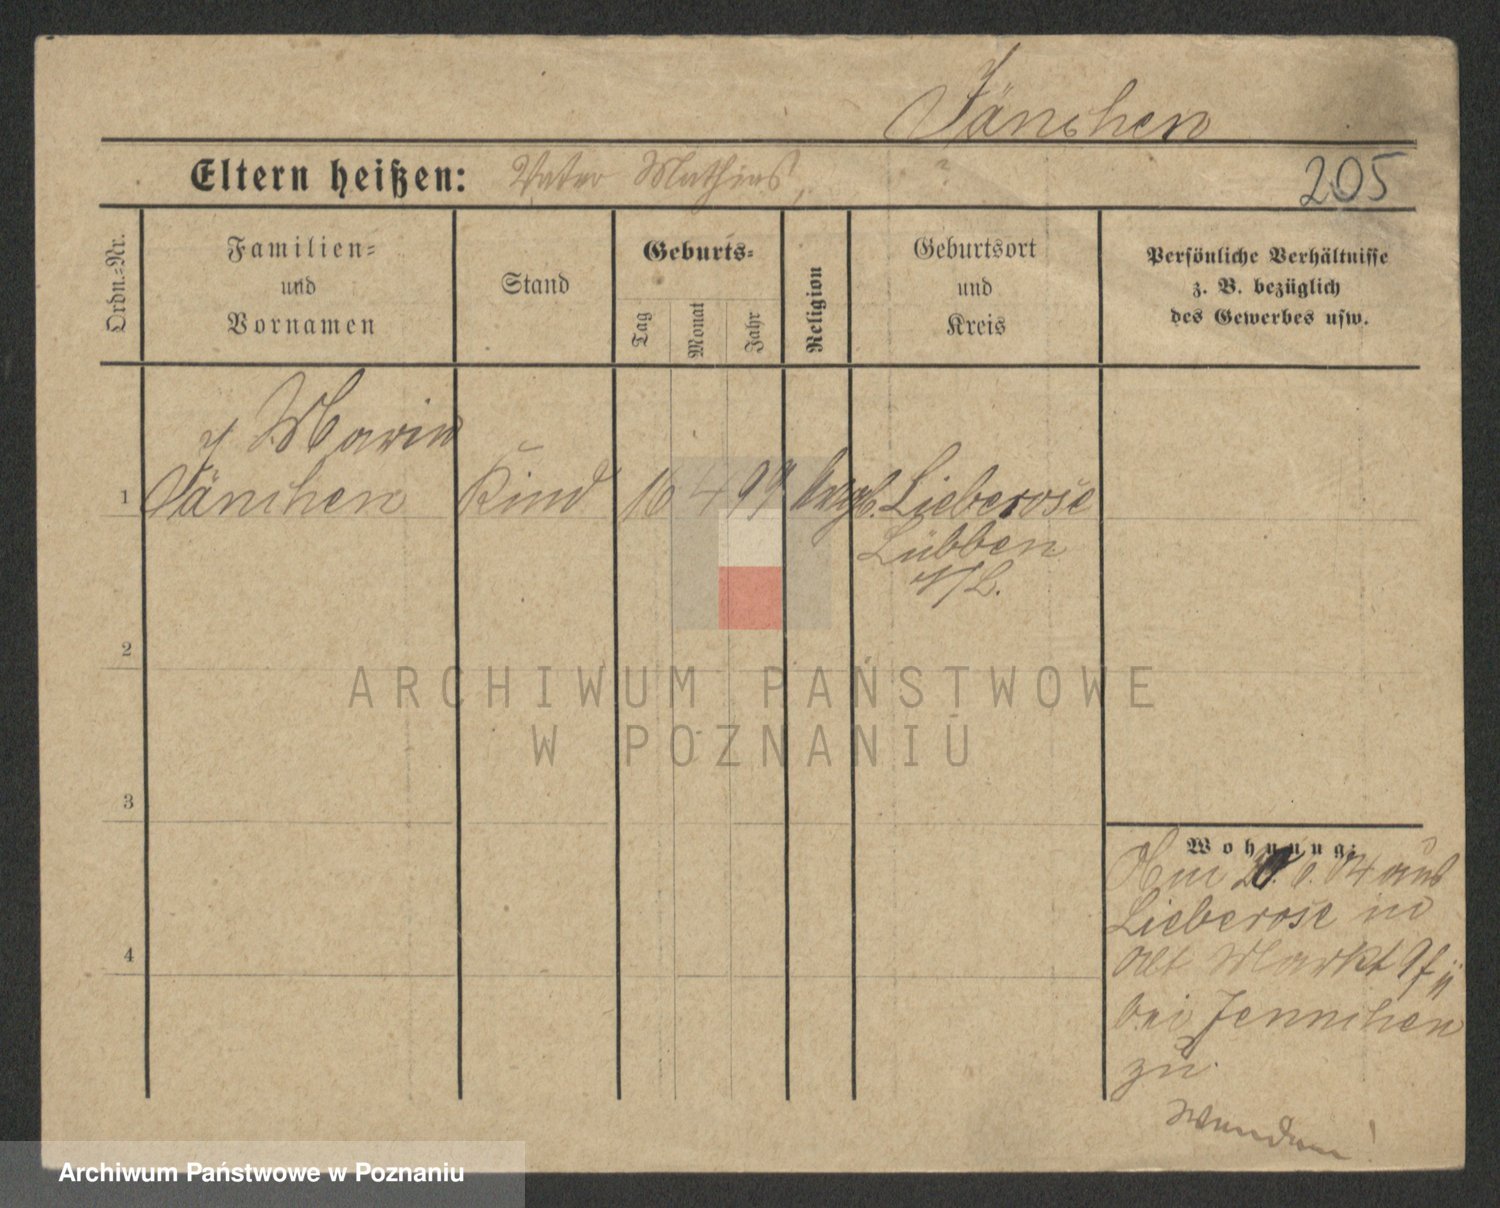 Jänchen
Eltern heißen: Vater Mathias, ?
205
Ordn.=Nr.
Familien=
und
Vornamen
Stand
Geburts=
Tag
Monat
Jahr
Religion
Geburtsort
und
Kreis
Persönliche Verhältnisse
z. B. bezüglich
des Gewerbes usw.
Marie
1 Jänchen Kind 16 4 99 evgl. Lieberose
Lübben
N/L.
2
3
4
Wohnung:
Am 6. 04 aus
Lieberose in
Alt Markt 9
bei Jennchen
zu
ARCHIWUM PAŃSTWOWE
W POZNANIU
Archiwum Państwowe w Poznaniu